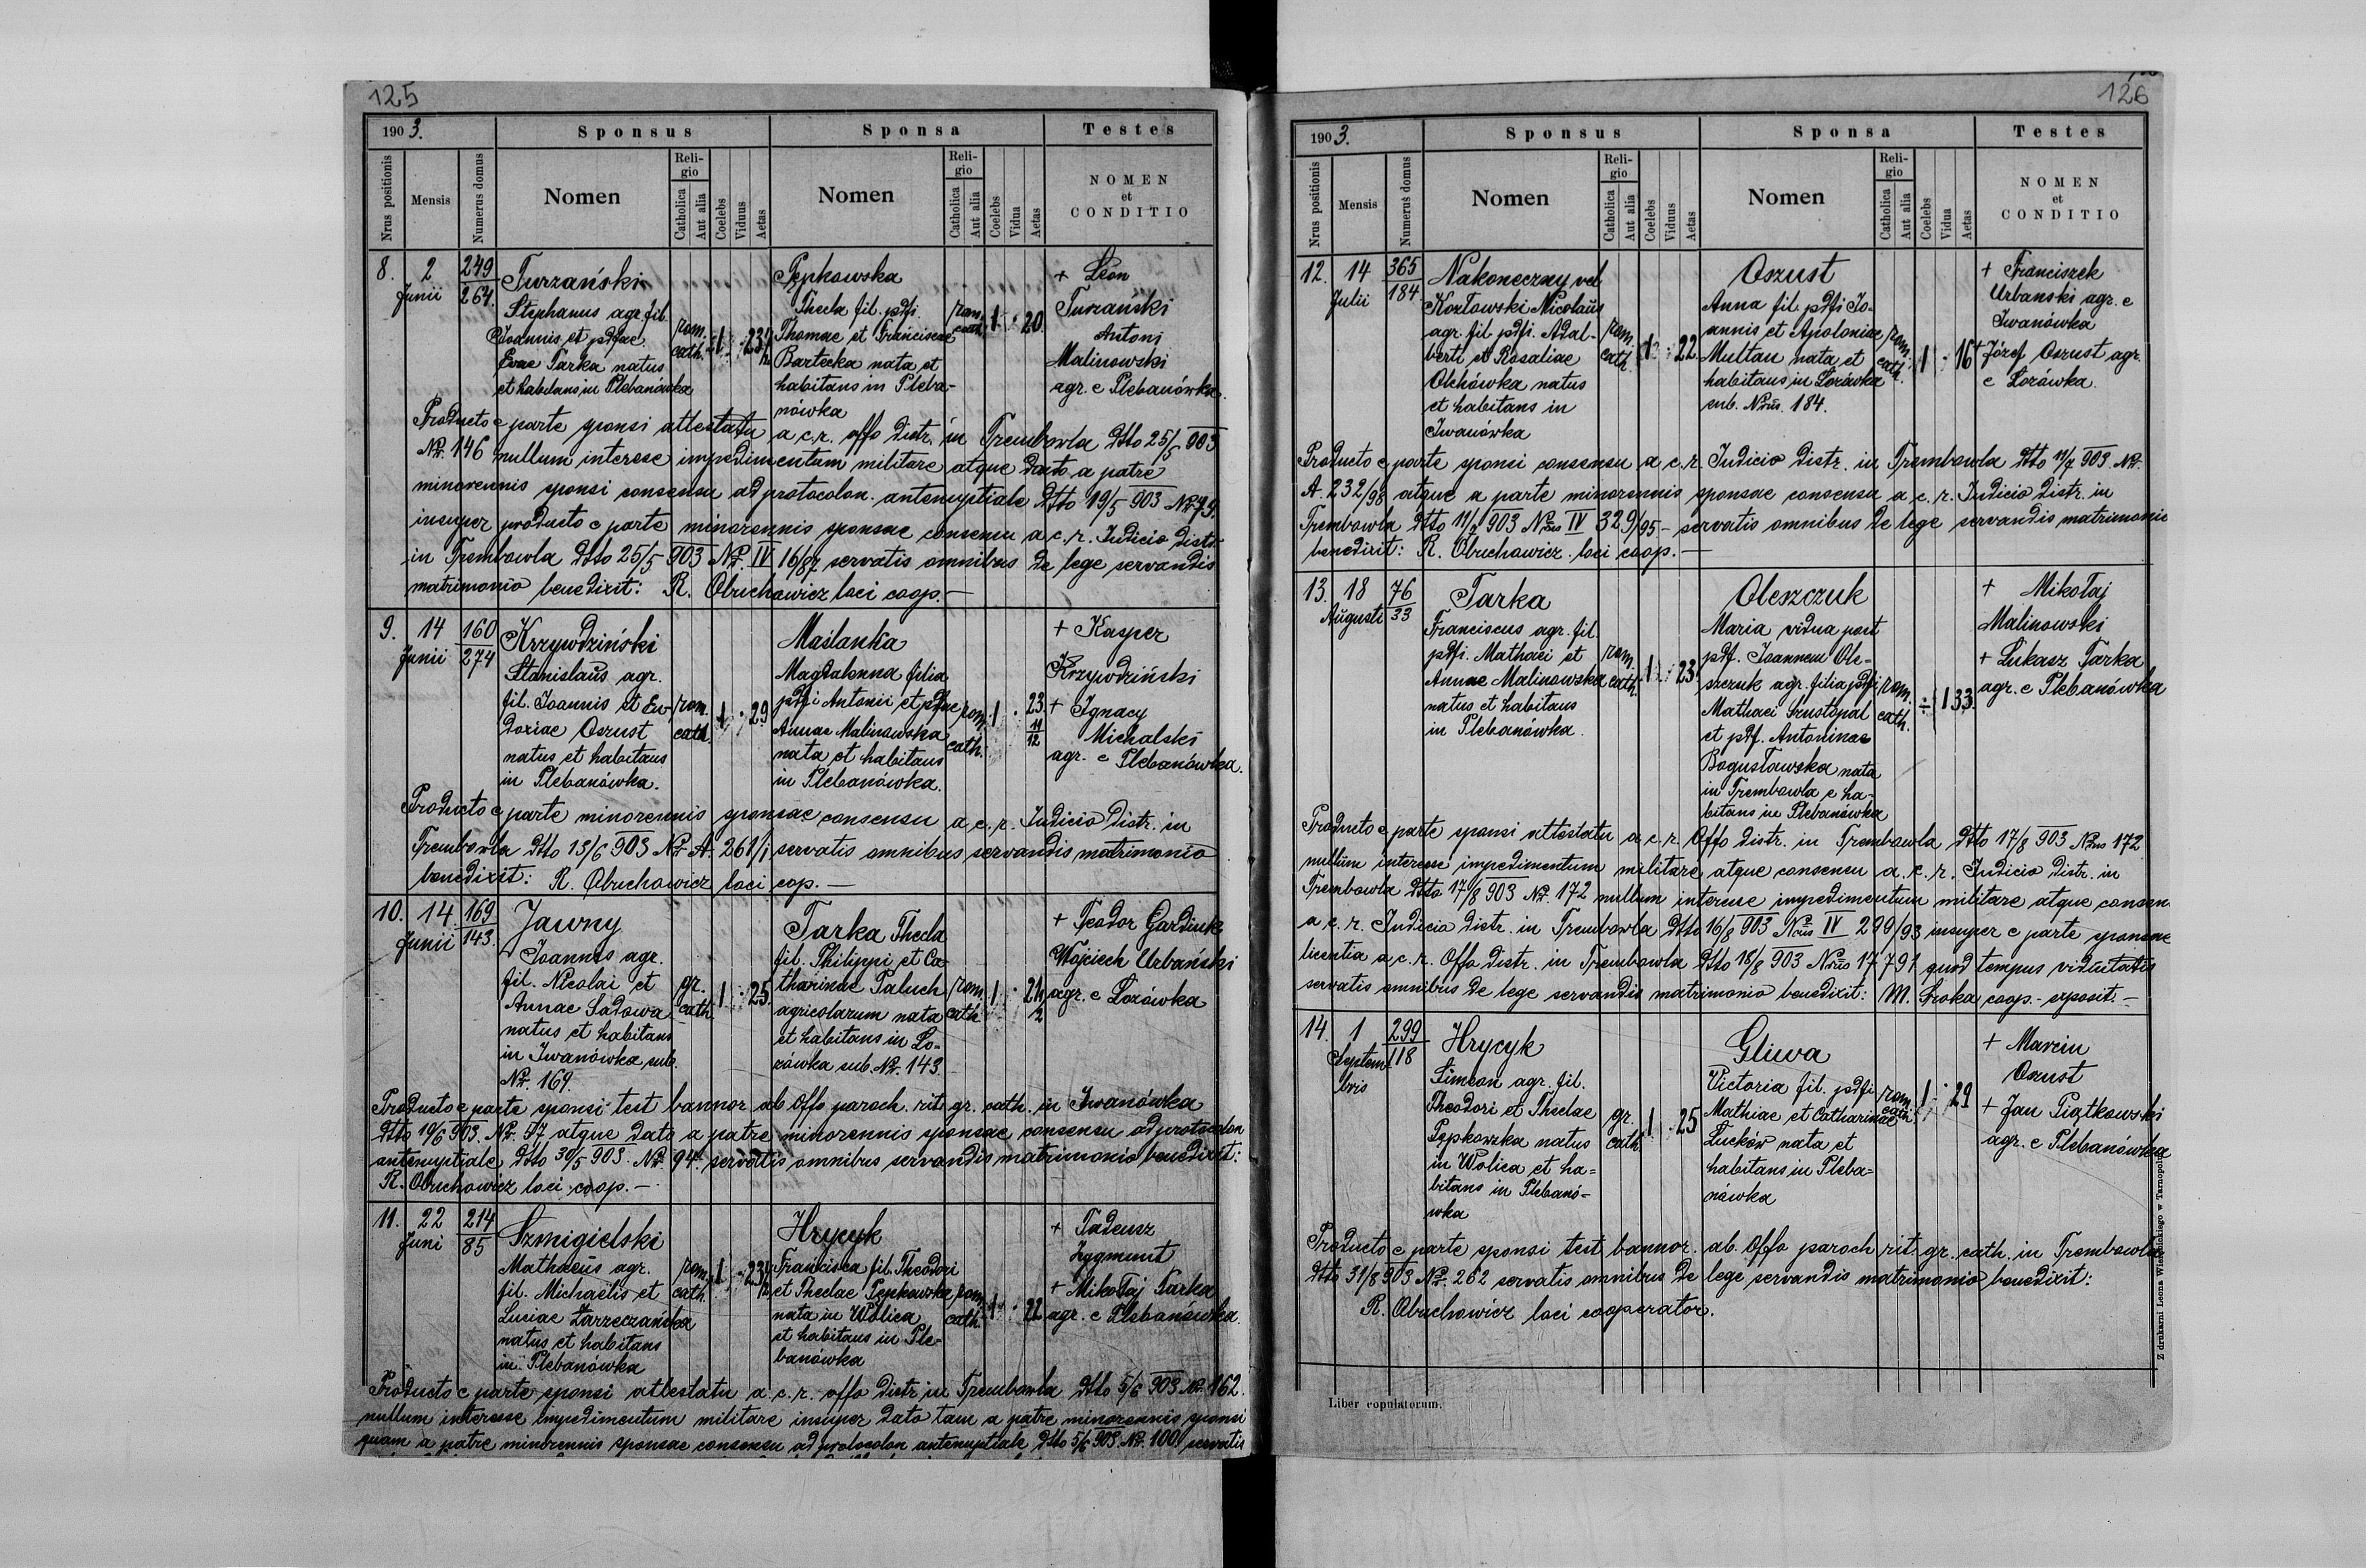 125
1903. Sponsus Sponsa Testes
Nrus positionis Mensis Numerus domus Nomen Religio Catholica Aut alia Coelebs Viduus Aetas Nomen Religio Catholica Aut alia Coelebs Vidua Aetas NOMEN et CONDITIO
8. 2 Junii 249 264.
Turzański
Stephanus agr. fil.
Joannis et pdfae
Evae Tarka natus
et habitans in Plebanówka
rom. cath. 1 23 1/2
Pępkowska
Thecla fil. pdfi.
Thomae et Franciscae
Bartecka nata et
habitans in Pleba-
nówka
rom. cath. 1 20
+ Leon
Turzański
Antoni
Malinowski
agr. e Plebanówka.
Producto e parte sponsi attestatu a c.r. offo distr. in Trembowla dtto 25/5 903
Nr. 146 nullum interesse impedimentum militare atque dato a patre
minorennis sponsi consensu ad protocolon antenuptiale dtto 19/5 903 Nr. 79.
insuper producto e parte minorennis sponsae consensu a c.r. Judicio distr.
in Trembowla dtto 25/5 903 Nr. IV 16/87 servatis omnibus de lege servandis
matrimonio benedixit: R. Obuchowicz loci coop. —
9. 14 Junii 160 274
Krzywdziński
Stanislaus agr.
fil. Joannis et Eu-
doxiae Oszust
natus et habitans
in Plebanówka.
rom. cath. 1 29
Maślanka
Magdalenna filia
pdfi Antonii et pdfae
Annae Malinowska
nata et habitans
in Plebanówka.
rom. cath. 1 23 11/12
+ Kasper
Krzywdziński
+ Ignacy
Michalski
agr. e Plebanówka.
Producto e parte minorennis sponsae consensu a c.r. Judicio distr. in
Trembowla dtto 13/6 903 Nr. A. 261/1 servatis omnibus servandis matrimonio
benedixit: R. Obuchowicz loci cop. —
10. 14 Junii 169 143.
Jawny
Joannes agr.
fil. Nicolai et
Annae Sadowa
natus et habitans
in Iwanówka sub.
Nr. 169.
gr. cath. 1 25.
Tarka Thecla
fil. Philippi et Ca-
tharinae Paluch
agricolarum nata
et habitans in Ło-
zówka sub. Nr. 143.
rom. cath. 1
+ Teodor Gardiuk
Wojciech Urbański
agr. e Łozówka
Producto e parte sponsi test bannor ab Offo paroch. rit. gr. cath. in Iwanówka
dtto 19/6 903. Nr. 97 atque dato a patre minorennis sponsae consensu ad protocolon
antenuptiale dtto 30/5 903. Nr. 94. servatis omnibus servandis matrimonio benedixit:
R. Obuchowicz loci coop. —
11. 22 Juni 214 85
Szmigielski
Mathaeus agr.
fil. Michaelis et
Luciae Zarzeczańska
natus et habitans
in Plebanówka
rom. cath. 1 23 1/2
Hrycyk
Francisca fil. Theodori
et Theclae Pępkowska
nata in Wolica
et habitans in Ple-
banówka
rom. cath. 1 22
+ Tadeusz
Zygmunt
+ Mikołaj Tarka
agr. e Plebanówka.
Producto e parte sponsi attestatu a c.r. offo distr. in Trembowla dtto 5/6 903 Nr. 162.
nullum interesse impedimentum militare insuper dato tam a patre minorennis sponsi
quam a patre minorennis sponsae consensu ad protocolon antenuptiale dtto 5/6 903. Nr. 100 servatis
126
1903. Sponsus Sponsa Testes
Nrus positionis Mensis Numerus domus Nomen Religio Catholica Aut alia Coelebs Viduus Aetas Nomen Religio Catholica Aut alia Coelebs Vidua Aetas NOMEN et CONDITIO
12. 14 Julii 365 184
Nakoneczny vel
Kozłowski Nicolaus
agr. fil pdfi. Adal-
berti et Rosaliae
Olchówka natus
et habitans in
Iwanówka
rom. cath. 1 22
Oszust
Anna fil. pdfi Jo-
annis et Apoloniae
Multan nata et
habitans in Łozówka
sub. Nro. 184.
rom. cath. 1 16
+ Franciszek
Urbanski agr. e
Iwanówka
+ Józef Oszust agr.
e Łozówka.
Producto e parte sponsi consensu a c.r. Judicio distr. in Trembowla dtto 11/7 903. Nr.
A. 232/98 atque a parte minorennis sponsae consensu a c.r. Judicio distr. in
Trembowla dtto 11/7 903 Nrus IV 329/95 - servatis omnibus de lege servandis matrimonio
benedixit: R. Obuchowicz loci coop. —
13. 18 Augusti 76 33
Tarka
Franciscus agr. fil.
pdfi. Mathaei et
Annae Malinowska
natus et habitans
in Plebanówka.
rom. cath. 1 23
Oleszczuk
Maria vidua post
pdf. Joannem Ole-
szczuk agr. filia pdfi
Mathaei Szustopal
et pdf. Antoninae
Bogusławska nata
in Trembowla e ha-
bitans in Plebanówka
rom. cath. 1 33.
+ Mikołaj
Malinowski
+ Łukasz Tarka
agr. e Plebanówka
Producto e parte sponsi attestatu a c.r. Offo distr. in Trembowla dtto 17/8 903 Nrus 172
nullum interesse impedimentum militare atque consensu a. c. r. Judicio distr. in
Trembowla dtto 17/8 903 Nr. 172 nullum interesse impedimentum militare atque consen
a c. r. Judicio distr. in Trembowla dtto 16/8 903 Nrus IV 299/93 insuper e parte sponsae
licentia a c.r. Offo distr. in Trembowla dtto 18/8 903 Nro 17791 quod tempus viduitatis
servatis omnibus de lege servandis matrimonio benedixit: M. Sroka coop. - exposit. —
14. 1 Septembris 299 118
Hrycyk
Simeon agr. fil.
Theodori et Theclae
Pępkowska natus
in Wolica et ha-
bitans in Plebanó-
wka
gr. cath. 1 25
Gliwa
Victoria fil. pdfi
Mathiae et Catharinae
Lucków nata et
habitans in Pleba-
nówka
rom. cath. 1 29
+ Marcin
Oszust
+ Jan Piątkowski
agr. e Plebanówka
Producto e parte sponsi test bannor. ab. Offo paroch rit. gr. cath. in Trembowla
dtto 31/8 903 Nr. 262 servatis omnibus de lege servandis matrimonio benedixit:
R. Obuchowicz loci cooperator.
Liber copulatorum.
Z drukarni Leona Wierzbickiego w Tarnopolu